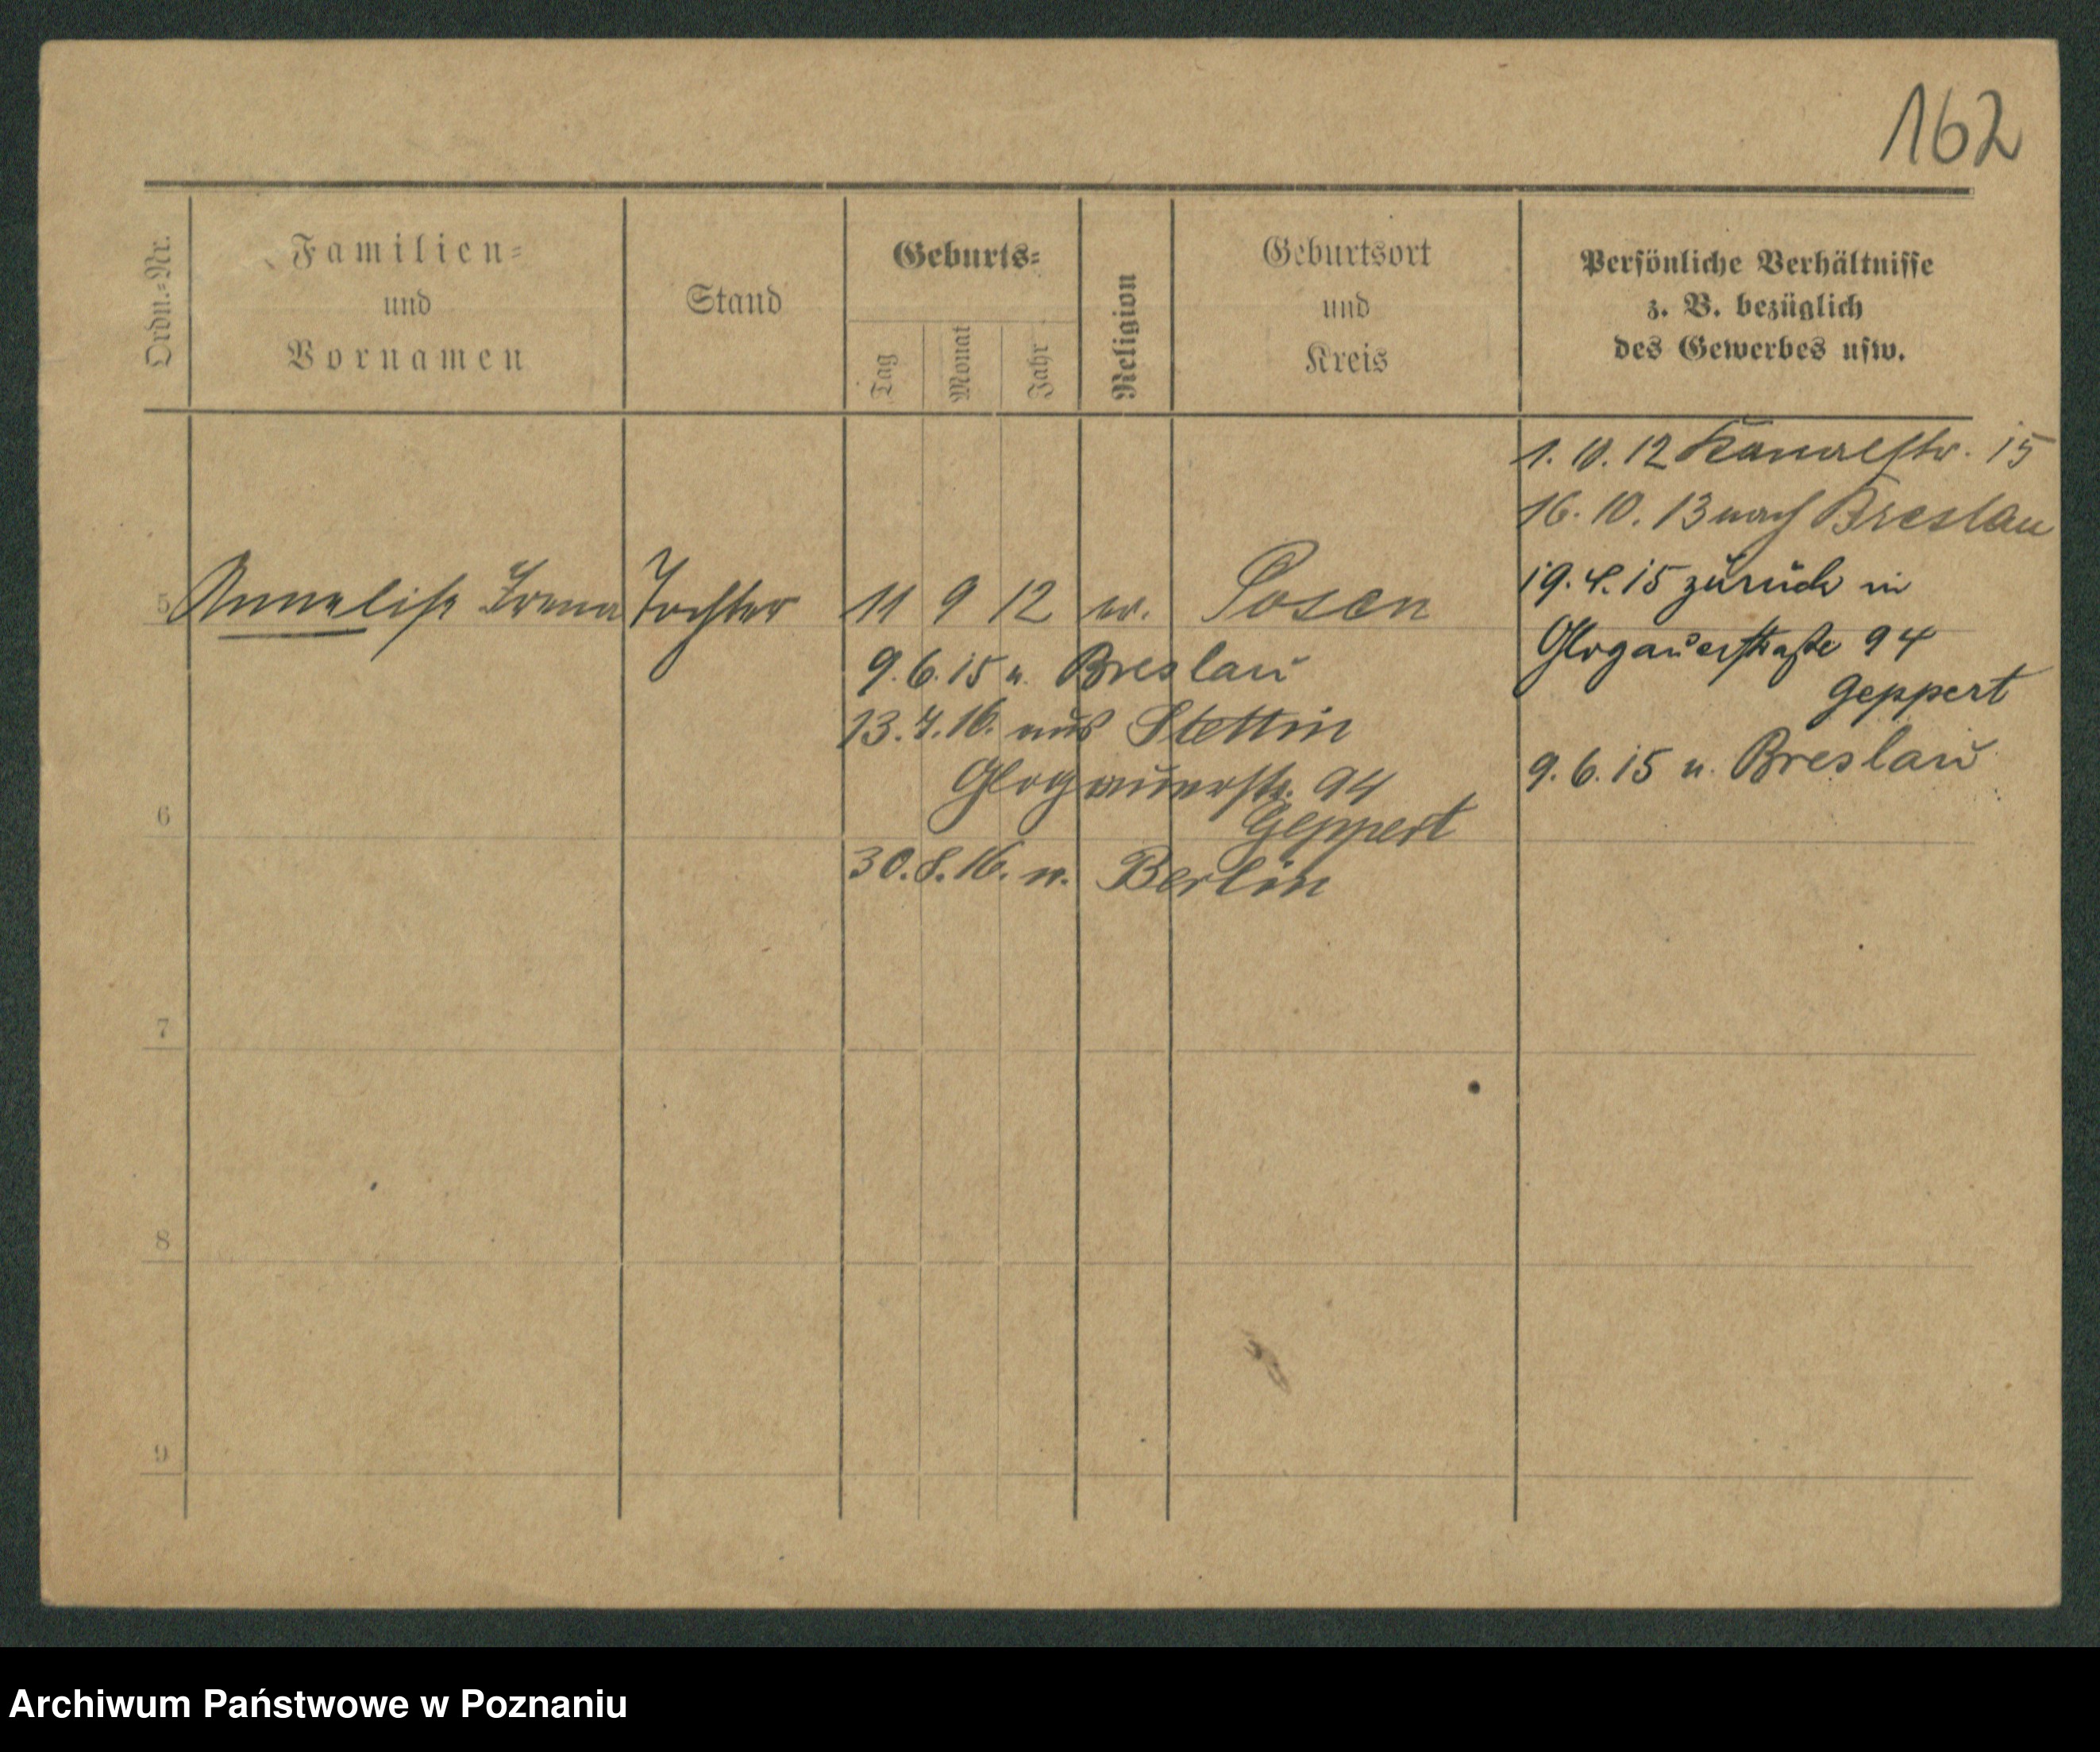 162
Ordn.-Nr.
Familien-
und
Vornamen
Stand
Geburts-
Tag
Monat
Jahr
Religion
Geburtsort
und
Kreis
Persönliche Verhältnisse
z. B. bezüglich
des Gewerbes usw.
1. 10. 12 Kanalstr. 15
16. 10. 13 nach Breslau
19. 4. 15 zurück in
Glogauerstraße 94
Geppert
9. 6. 15 n. Breslau
5 Annelise Irena Tochter 11 9 12 ev. Posen
9. 6. 15 n. Breslau
13. 7. 16. aus Stettin
Glogauerstr. 94
Geppert
6
30. 8. 16. n. Berlin
7
8
9
Archiwum Państwowe w Poznaniu